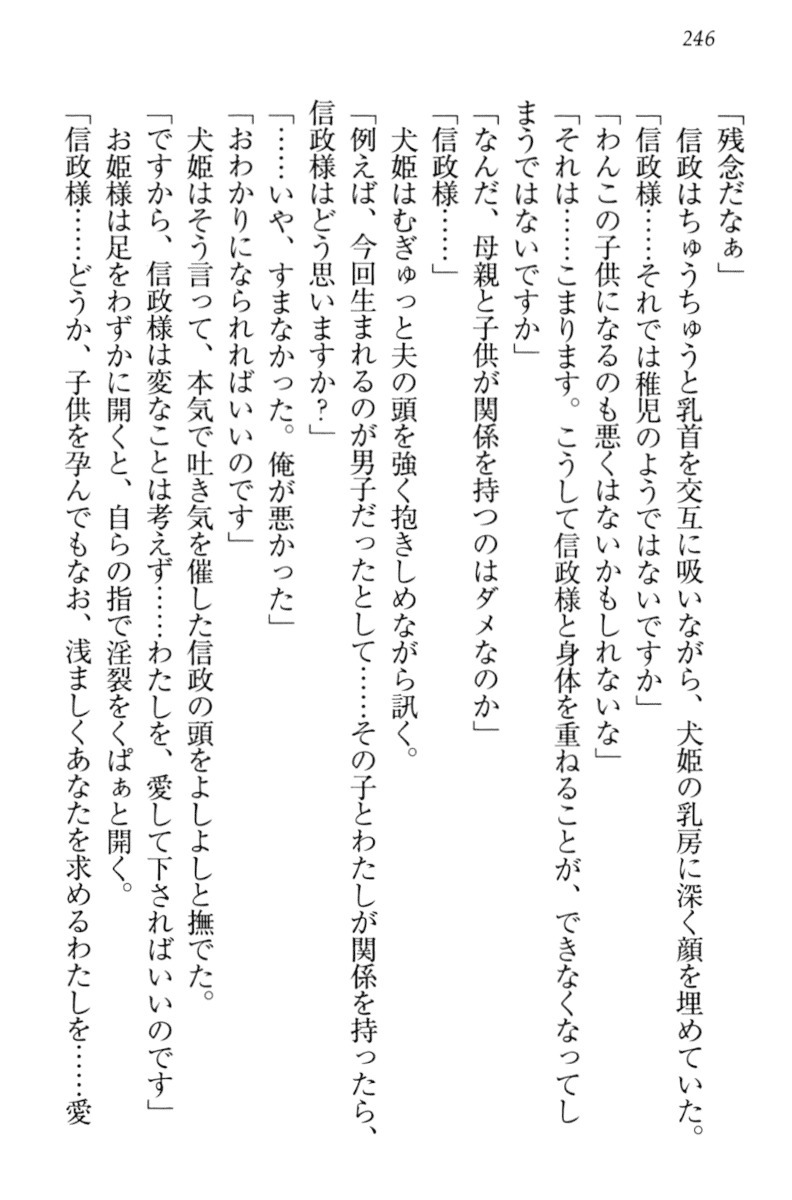 246
「残念だなぁ」
　信政はちゅうちゅうと乳首を交互に吸いながら、犬姫の乳房に深く顔を埋めていた。
「信政様……それでは稚児のようではないですか」
「わんこの子供になるのも悪くはないかもしれないな」
「それは……こまります。こうして信政様と身体を重ねることが、できなくなってし
まうではないですか」
「なんだ、母親と子供が関係を持つのはダメなのか」
「信政様……」
　犬姫はむぎゅっと夫の頭を強く抱きしめながら訊く。
「例えば、今回生まれるのが男子だったとして……その子とわたしが関係を持ったら、
信政様はどう思いますか？」
「……いや、すまなかった。俺が悪かった」
「おわかりになられればいいのです」
　犬姫はそう言って、本気で吐き気を催した信政の頭をよしよしと撫でた。
「ですから、信政様は変なことは考えず……わたしを、愛して下さればいいのです」
　お姫様は足をわずかに開くと、自らの指で淫裂をくぱぁと開く。
「信政様……どうか、子供を孕んでもなお、浅ましくあなたを求めるわたしを……愛